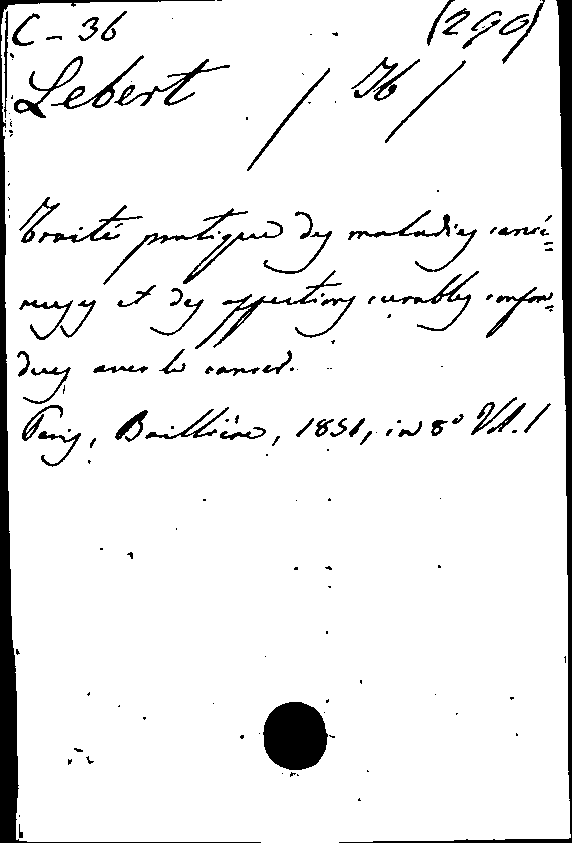 C - 36 (290)
Lebert / H /
Traité pratique des maladies cancé=
reuses et des affections curables confon=
dues avec le cancer.
Paris, Baillière, 1851, in 8° Vol. 1